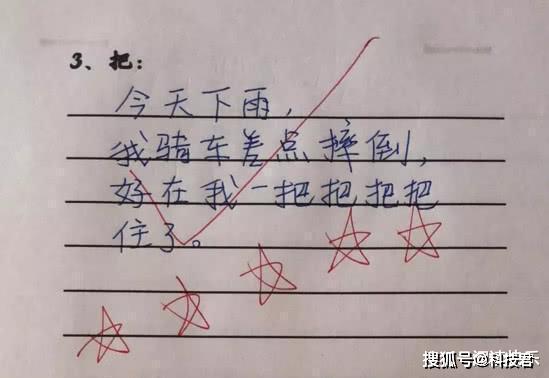 3、把：
今天下雨，
我骑车差点摔倒，
好在我一把把把把
住了。
搜狐号@科技客